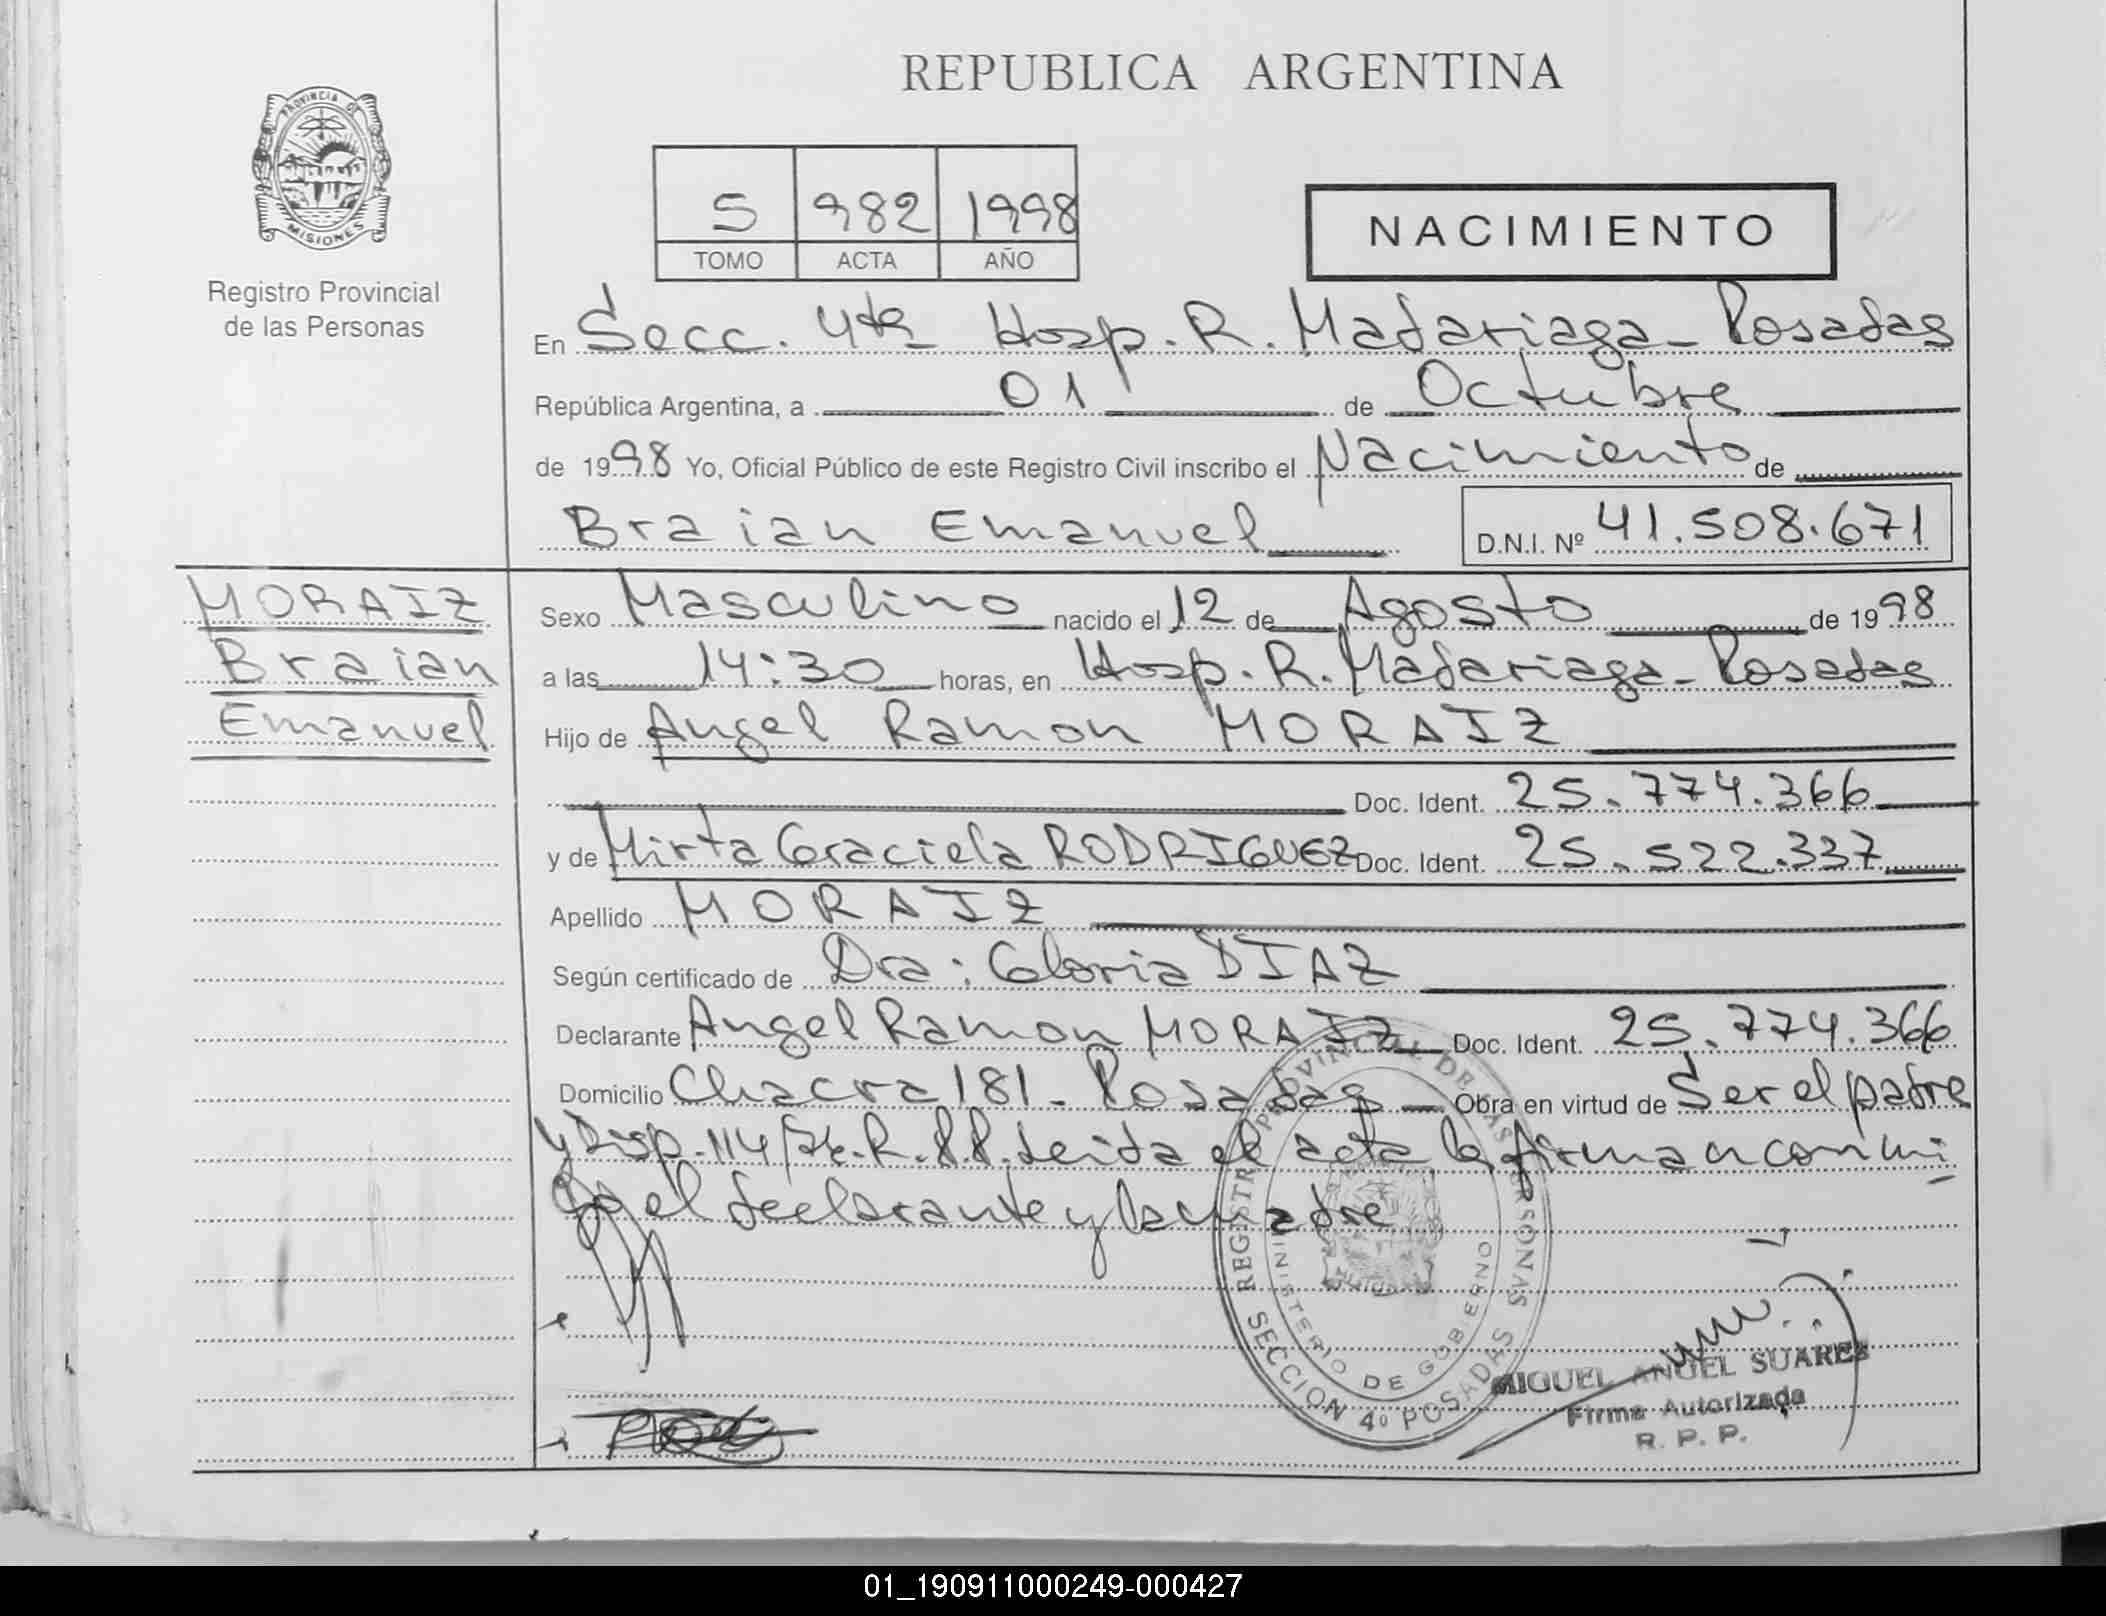 REPUBLICA ARGENTINA
PROVINCIA DE
MISIONES
Registro Provincial
de las Personas
5 982 1998
TOMO ACTA AÑO
NACIMIENTO
En Secc. 4ta Hosp. R. Madariaga - Posadas
República Argentina, a 01 de Octubre
de 1998 Yo, Oficial Público de este Registro Civil inscribo el Nacimiento de
Braian Emanuel D.N.I. Nº 41.508.671
MORAIZ
Braian
Emanuel
Sexo Masculino nacido el 12 de Agosto de 1998
a las 14:30 horas, en Hosp. R. Madariaga - Posadas
Hijo de Angel Ramon MORAIZ
Doc. Ident. 25.774.366
y de Mirta Graciela RODRIGUEZ Doc. Ident. 25.522.337
Apellido MORAIZ
Según certificado de Dra: Gloria DIAZ
Declarante Angel Ramon MORAIZ Doc. Ident. 25.774.366
Domicilio Chacra 181 - Posadas Obra en virtud de Ser el padre
y Disp. 114 88. Leida el acta la firman conmi
go el declarante y la madre
REGISTRO PROVINCIAL DE LAS PERSONAS
MINISTERIO DE GOBIERNO
SECCION 4º POSADAS
MIGUEL ANGEL SUAREZ
Firma Autorizada
R. P. P.
01_190911000249-000427